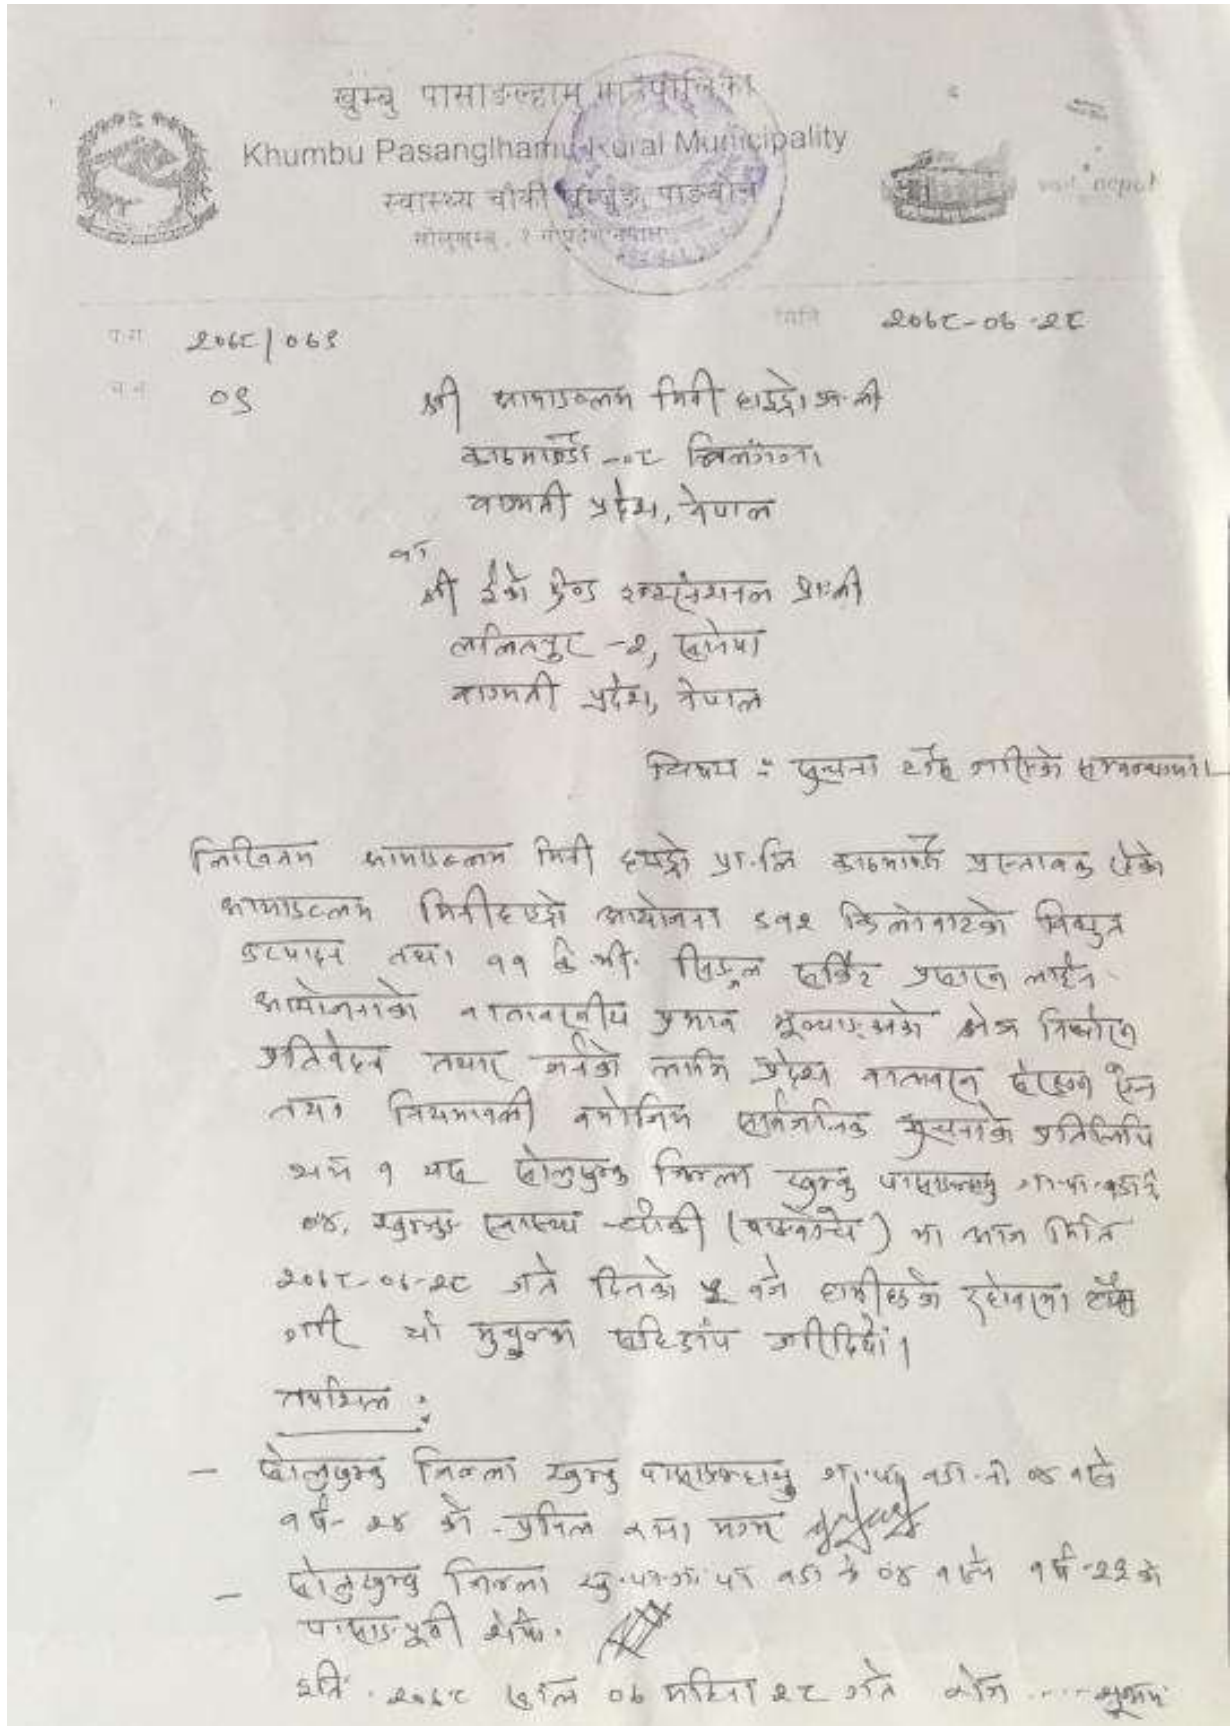 खुम्बु पासाङल्हामु गाउँपालिका
Khumbu Pasanglhamu Rural Municipality
स्वास्थ्य चौकी खुम्जुङ, पाङबोचे
सोलुखुम्बु, १ नं प्रदेश नेपाल
प.सं. २०७८/०७९
मिति २०७८-०७-२८
च.नं. ०९
श्री आमाडब्लम मिनी हाईड्रो प्रा.ली
काठमाण्डौ -०८
बाग्मती प्रदेश, नेपाल
वा
श्री ईको ग्रिन्ड इन्टरनेशनल प्रा.ली
ललितपुर -२, सानेपा
बाग्मती प्रदेश, नेपाल
विषय : सुचना टाँस गरिएको सम्बन्धमा।
लिखितम आमाडब्लम मिनी हाइड्रो प्रा.लि काठमाण्डौ प्रस्तावक रहेको
आमाडब्लम मिनीहाइड्रो आयोजना किलोवाटको विद्युत
उत्पादन तथा ११ के.भी. सिङ्गल सर्किट प्रसारण लाईन
आयोजनाको वातावरणीय प्रभाव मूल्याङ्कनको क्षेत्र निर्धारण
प्रतिवेदन तयार गर्नको लागि प्रदेश वातावरण संरक्षण ऐन
तथा नियमावली बमोजिम सार्वजनिक सूचनाको प्रतिलिपि
थान १ यस सोलुखुम्बु जिल्ला खुम्बु पासाङल्हामु गा.पा. वडा नं
०४, खुम्जुङ स्वास्थ्य चौकी (पाङबोचे) मा आज मिति
२०७८-०७-२८ गते दिनको बजे हामीहरुको रोहवरमा टाँस
गरी यो मुचुल्का सहिछाप गरिदियौं।
तपशिल :
- सोलुखुम्बु जिल्ला खुम्बु पासाङल्हामु गा.पा वडा नं ०४ बस्ने
वर्ष- २४ को
- सोलुखुम्बु जिल्ला खु.पा.गा.पा वडा नं ०४ बस्ने वर्ष-२२ को
पासाङ फुती शेर्पा.
इति २०७८ साल ०७ महिना २८ गते रोज .... शुभम्